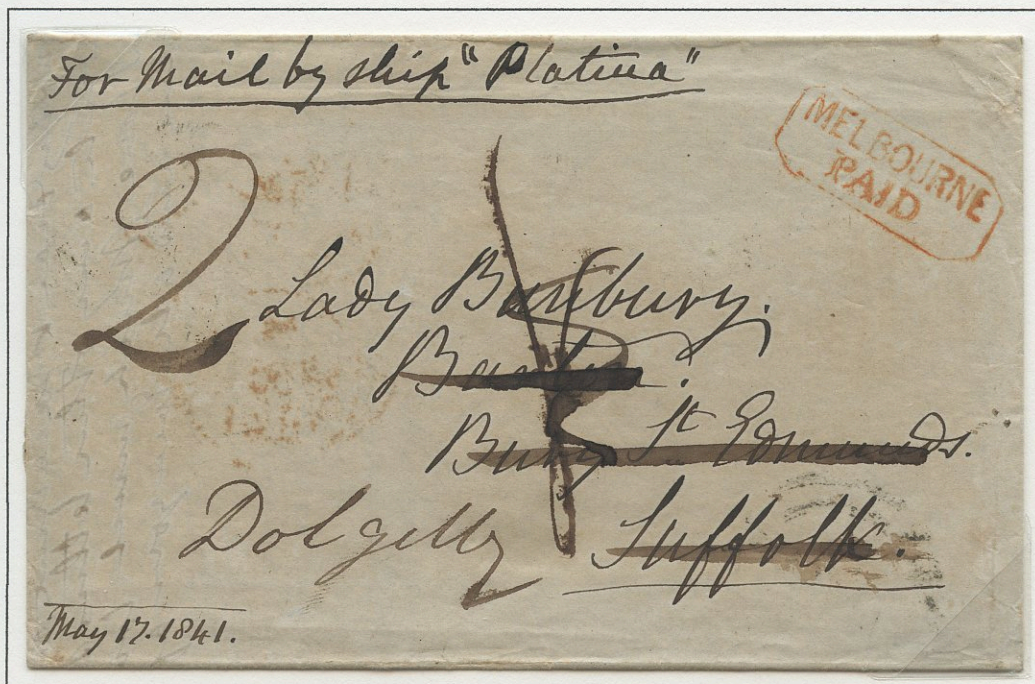 For Mail by ship "Platina"
MELBOURNE
PAID
2
Lady Bunbury.
Barton.
Bury St Edmunds.
Suffolk.
Dolgelly
May 17. 1841.